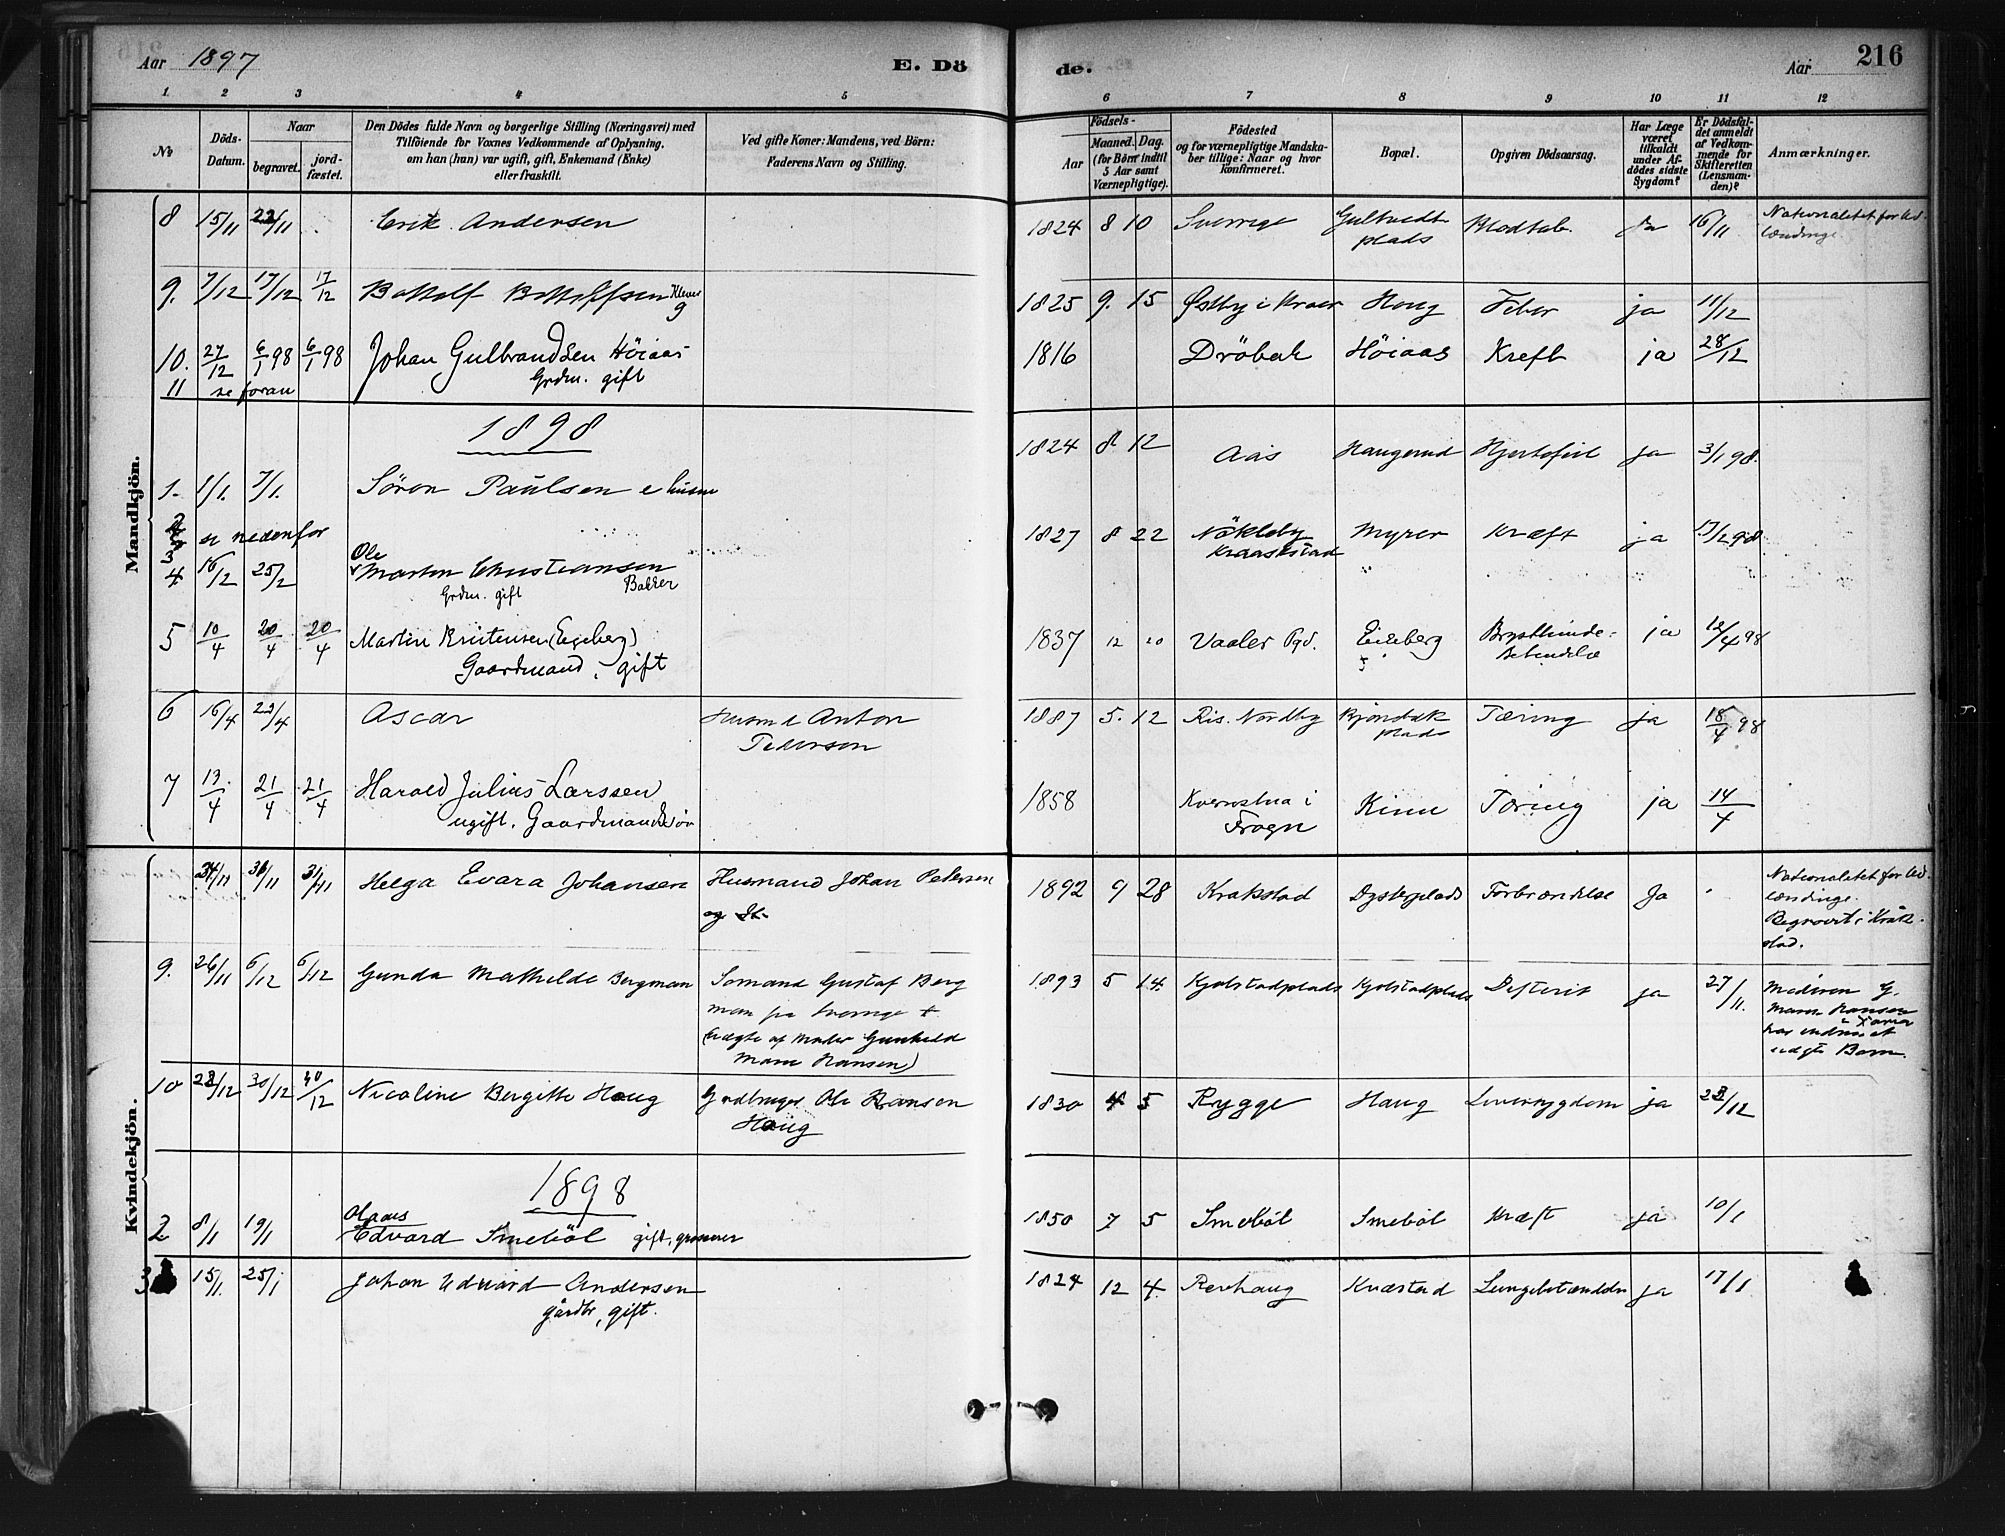 Aar 1897
E. Dö
de.
Aar
216
1 2 3 4 5 6 7 8 9 10 11 12
No
Döds-
Datum.
Naar
begravet.
jord-
fæstet.
Den Dödes fulde Navn og borgerlige Stilling (Næringsvei) med
Tilföiende for Voxnes Vedkommende af Oplysning,
om han (hun) var ugift, gift, Enkemand (Enke)
eller fraskilt.
Ved gifte Koner: Mandens, ved Börn:
Faderens Navn og Stilling.
Födsels-
Aar
Maaned. Dag.
(for Börn indtil
5 Aar samt
Værnepligtige).
Födested
og for værnepligtige Mandska-
ber tillige: Naar og hvor
konfirmeret.
Bopæl.
Opgiven Dödsaarsag.
Har Læge
været
tilkaldt
under Af-
dödes sidste
Sygdom?
Er Dödsfal-
det anmeldt
af Vedkom-
mende for
Skifteretten
(Lensman-
den)?
Anmærkninger.
Mandkjön.
8 15/11 22/11 Erik Andersen 1824 8 10 Sverrige plads Blodtab Ja 16/11 Nationalitet for Ud-
lændinge
9. 7/12 17/12 17/12 Bottolf Bottolfsen 1825 9. 15 Østby i Kraer Haug Feber ja 11/12
10. 27/12 6/1 98 6/1 98 Johan Gulbrandsen Höiaas 1816 Dröbak Höiaas Kreft ja 28/12
Grdm. gift
11 se foran
1898
1. 1/1. 7/1. Sören Paulsen e husm 1824 8 12 Aas Haugerud Hjertefeil ja 3/1 98.
2 se nedenfor
3
4 16/2 25/2 Ole Martin Christiansen 1827 8 22 Nökleby Kraakstad Myrer Kræft ja 17/2 98
Grdm. gift Bakker
5 10/4 20/4 20/4 Martin Kristensen (Egeberg) 1837 12 20 Vaaler Pgd. Eikeberg Brysthinde- ja 12/4 98
Gaardmand, gift betendelse
6 16/4 23/4 Ascar Husmd Anton 1887 5. 12 Ris. Nordby plads Tæring ja 18/4 98
Pedersen
7 13/4 21/4 21/4 Harald Julius Larssen 1858 Kvernstua i Kinn Tæring ja 14/4
ugift. Gaardmandssön Frogn
Kvindekjön.
24/11 31/11 Helga Evara Johansen Husmand Johan Petersen 1892 9 28 Krakstad Dysterplads Forbrændelse Ja Nationalitet for Ud-
og lændinge.
Begravet i Kråk-
stad.
9. 26/11 6/12 6/12 Gunda Mathilde Bergman Sømand Gustaf Berg 1893 5 14. Kjølstadplads Kjølstadplads Difterit ja 27/11. Moderen G.
man fra Sverrige Marie Hansen
(uægte af Moder Gunhild har endnu et
Marie Hansen) uægte Barn.
10 28/12 30/12 30/12 Nicoline Bergitte Haug Gardbruger Ole Hansen 1830 4 5 Rygge Haug Leversygdom ja 28/12
Haug
1898
2 8/1 19/1 Olaus 1850 7 5 Smeböl Smeböl Kræft ja 10/1
Edvard Smeböl gift,
3 15/1. 25/1 Johan Edvard Andersen 1824 12 4. Revhaug Kvæstad ja 17/1
gårdbr, gift.